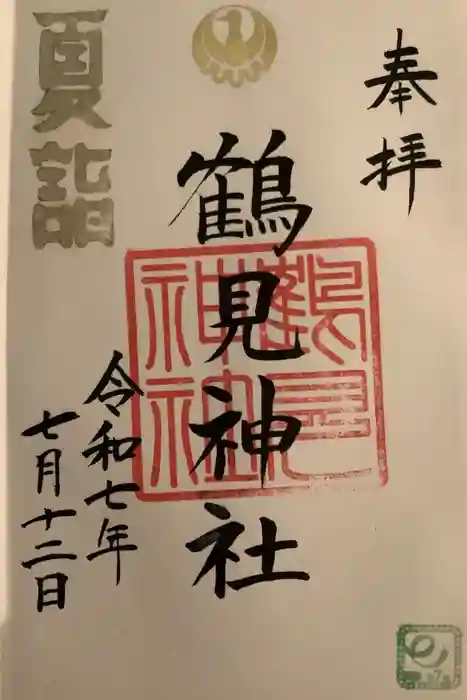 奉拝
鶴見神社
鶴見
神社
令和七年
七月十二日
夏詣